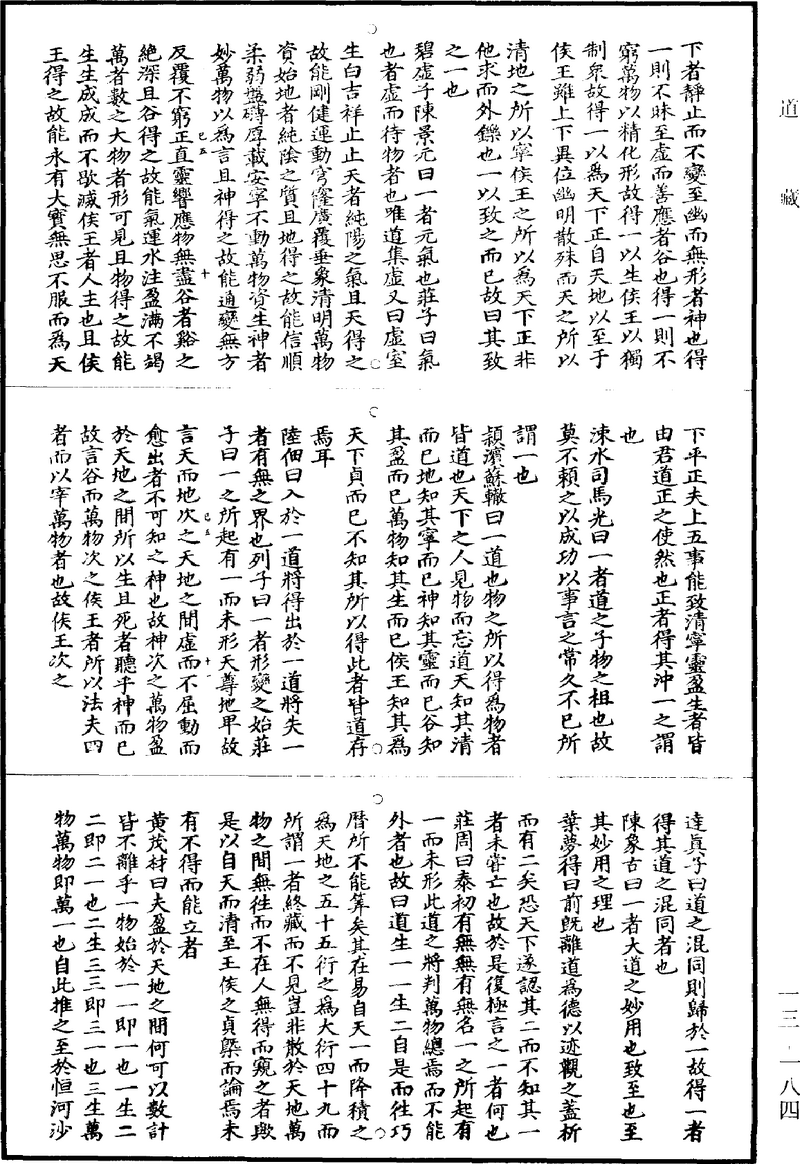 道藏
下者靜止而不變至幽而無形者神也得
一則不昧至虛而善應者谷也得一則不
窮萬物以精化形故得一以生侯王以獨
制衆故得一以爲天下正自天地以至于
侯王雖上下異位幽明散殊而天之所以
清地之所以寧侯王之所以爲天下正非
他求而外鑠也一以致之而已故曰其致
之一也
碧虛子陳景元曰一者元氣也莊子曰氣
也者虛而待物者也唯道集虛又曰虛室
生白吉祥止止天者純陽之氣且天得之
故能剛健運動穹窿廣覆垂象清明萬物
資始地者純陰之質且地得之故能信順
柔弱盤礴厚載安寧不動萬物資生神者
妙萬物以爲言且神得之故能通變無方
己五
十
反覆不窮正直靈響應物無盡谷者谿之
絶深且谷得之故能氣運水注盈滿不竭
萬者數之大物者形可見且物得之故能
生生成成而不歇滅侯王者人主也且侯
王得之故能永有大寶無思不服而爲天
下平正夫上五事能致清寧靈盈生者皆
由君道正之使然也正者得其沖一之謂
也
涑水司馬光曰一者道之子物之祖也故
莫不賴之以成功以事言之常久不已所
謂一也
潁濱蘇轍曰一道也物之所以得爲物者
皆道也天下之人見物而忘道天知其清
而已地知其寧而已神知其靈而已谷知
其盈而已萬物知其生而已侯王知其爲
天下貞而已不知其所以得此者皆道存
焉耳
陸佃曰入於一道將得出於一道將失一
者有無之界也列子曰一者形變之始莊
子曰一之所起有一而未形天尊地卑故
己五
十一
言天而地次之天地之間虛而不屈動而
愈出者不可知之神也故神次之萬物盈
於天地之間所以生且死者聽乎神而已
故言谷而萬物次之侯王者所以法夫四
者而以宰萬物者也故侯王次之
達眞子曰道之混同則歸於一故得一者
得其道之混同者也
陳象古曰一者大道之妙用也致至也至
其妙用之理也
葉夢得曰前既離道爲德以迹觀之蓋析
而有二矣恐天下遂認其二而不知其一
者未嘗亡也故於是復極言之一者何也
莊周曰泰初有無無有無名一之所起有
一而未形此道之將判萬物總焉而不能
外者也故曰道生一一生二自是而往巧
曆所不能筭矣其在易自天一而降積之
爲天地之五十五衍之爲大衍四十九而
所謂一者終藏而不見豈非散於天地萬
物之間無往而不在人無得而窺之者歟
是以自天而清至王侯之貞槩而論焉未
有不得而能立者
黃茂材曰夫盈於天地之間何可以數計
皆不離乎一物始於一一即一也一生二
二即二一也二生三三即三一也三生萬
物萬物即萬一也自此推之至於恒河沙
一三－一八四